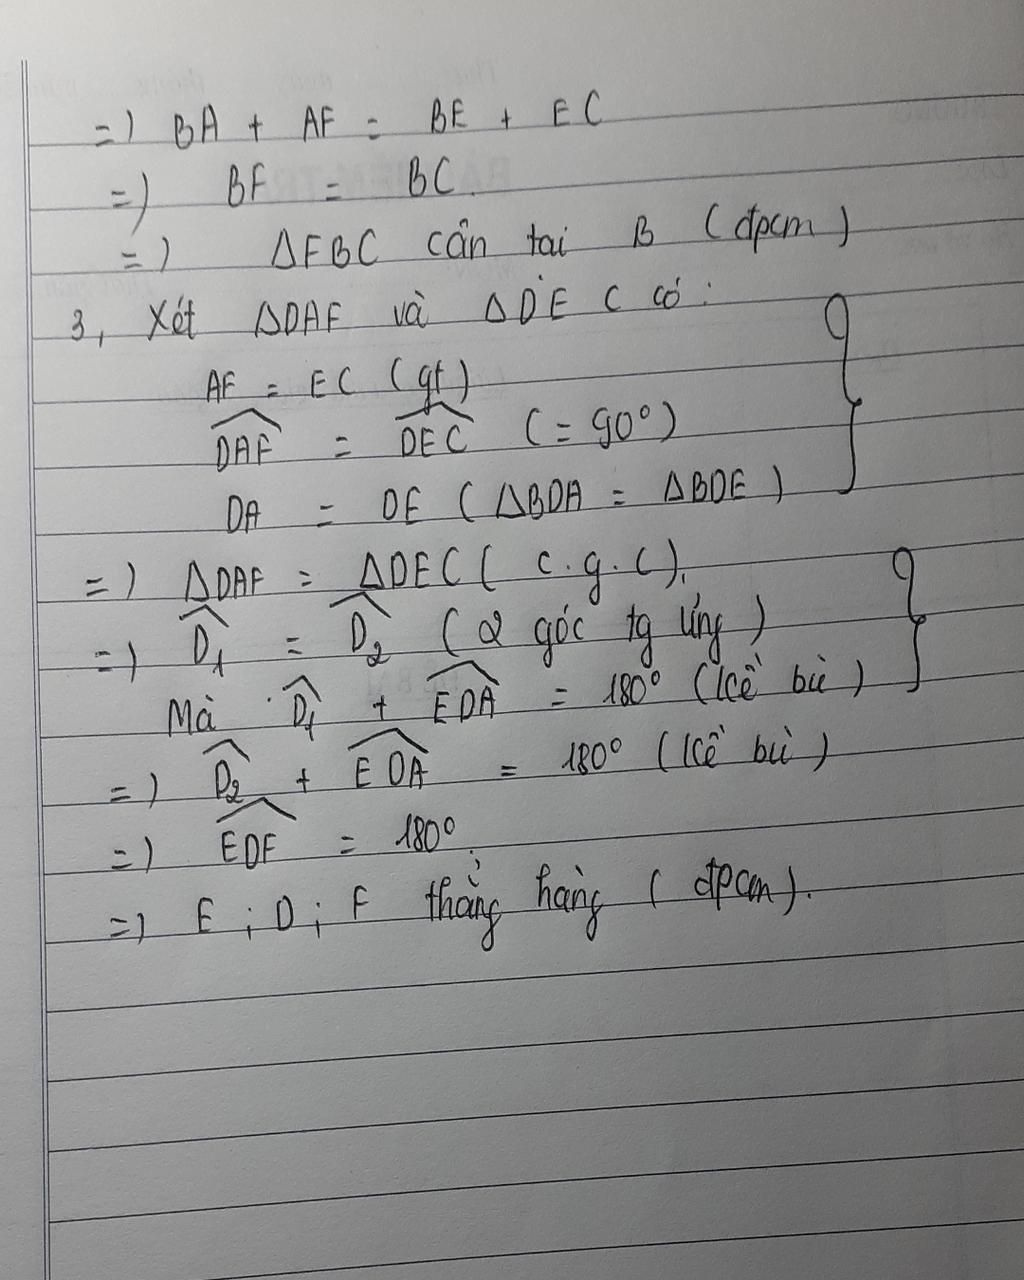 =) BA + AF = BE + EC
=) BF = BC.
=) ΔFBC cân tai B (đpcm)
3, Xét ΔDAF và ΔDEC có:
AF = EC (gt)
\widehat{DAF} = \widehat{DEC} (= 90°)
DA = DE (ΔBDA = ΔBDE)
=) ΔDAF = ΔDEC (c.g.c).
=) \widehat{D_1} = \widehat{D_2} (2 góc tg ứng)
Mà \widehat{D_1} + \widehat{EDA} = 180° (Kề bù)
=) \widehat{D_2} + \widehat{EDA} = 180° (Kề bù)
=) \widehat{EDF} = 180°.
=) E; D; F thẳng hàng (đpcm).